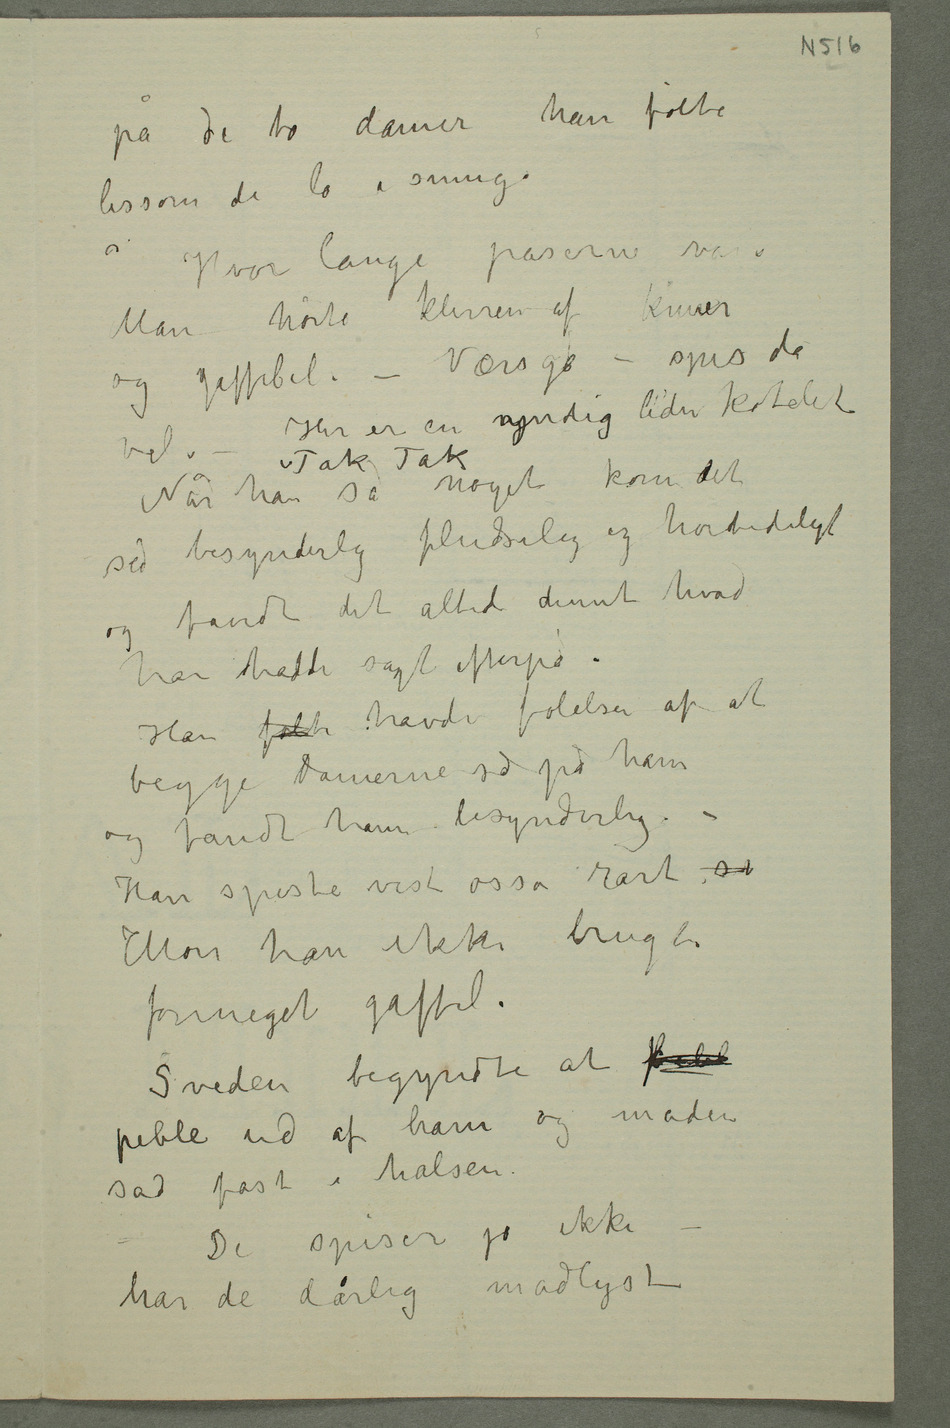 N516
på de to damer han følte
lissom de lo i smug.
Hvor lange paserne var.
Man hørte klirren af kniver
og gaffel. – Værsgo – spis da
vel. – Her er en nydelig liden kotelet
Tak Tak
Når han sa noget kom det
så besynderlig pludselig og
og fandt det altid dumt hvad
han hadde sagt efterpå.
Han følte havde følelsen af at
begge Damerne så på ham
og fandt ham besynderlig. –
Han spiste vist osså rart så
Mon han ikke bruger
formeget gaffel.
Sveden begyndte at
peble ud af ham og maden
sad fast i halsen.
– De spiser jo ikke –
har de dårlig madlyst